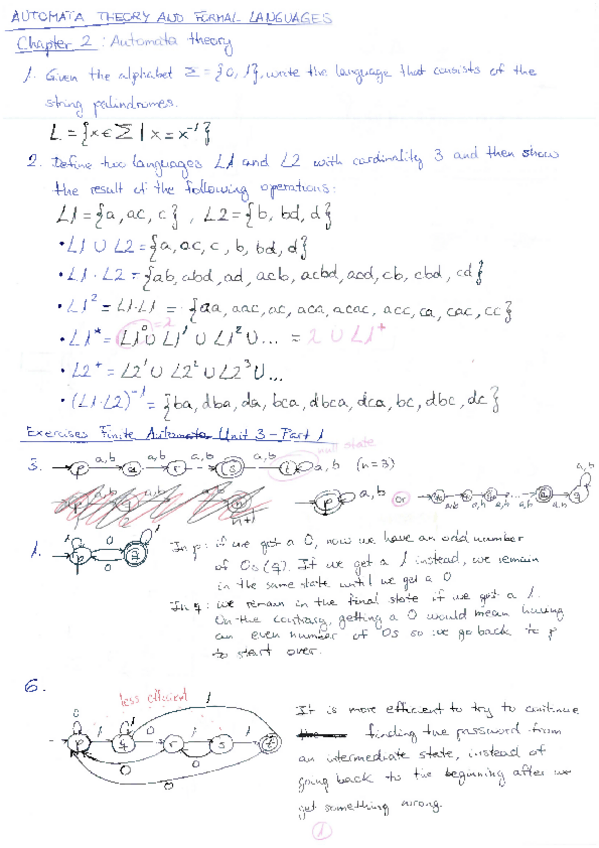 AUTOMATA THEORY AND FORMAL LANGUAGES
Chapter 2: Automata theory
1. Given the alphabet Σ={0, 1}, write the language that consists of the
string palindromes.
L = {x ∈ Σ | x = x⁻¹}
2. Define two languages L1 and L2 with cardinality 3 and then show
the result of the following operations:
L1 = {a, ac, c} , L2 = {b, bd, d}
• L1 ∪ L2 = {a, ac, c, b, bd, d}
• L1 · L2 = {ab, abd, ad, acb, acbd, acd, cb, cbd, cd}
• L1² = L1·L1 = {aa, aac, ac, aca, acac, acc, ca, cac, cc}
• L1* = L1⁰ ∪ L1¹ ∪ L1² ∪ ... = λ ∪ L1⁺
= λ
• L2⁺ = L2¹ ∪ L2² ∪ L2³ ∪ ...
• (L1·L2)⁻¹ = {ba, dba, da, bca, dbca, dca, bc, dbc, dc}
Exercises Finite Automata Unit 3 - Part 1
null state
3. p a,b q a,b r a,b s a,b t a,b (n=3)
p a,b or a,b a,b a,b a,b a,b
n+1
1. p 1 0 0 q 1
In p: if we got a 0, now we have an odd number
of 0s (q). If we get a 1 instead, we remain
in the same state until we get a 0
In q: we remain in the final state if we got a 1.
On the contrary, getting a 0 would mean having
an even number of 0s so we go back to p
to start over.
6.
less efficient
0 p 1 q 1 0 r 1 s 1 t 1 0 0 0
It is more efficient to try to continue
finding the password from
an intermediate state, instead of
going back to the beginning after we
get something wrong.
1